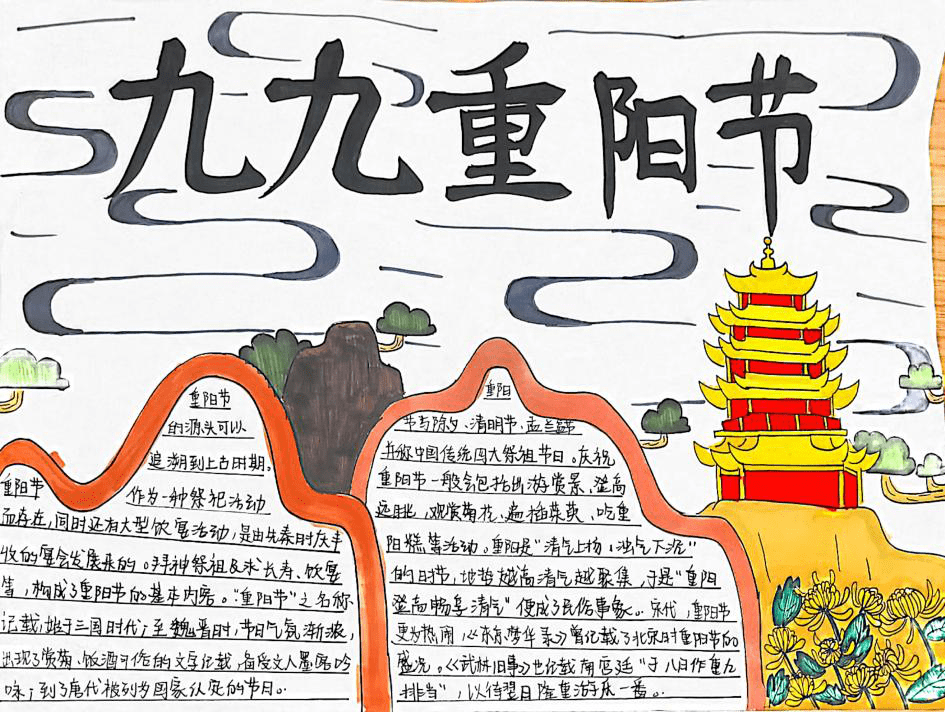 九九重阳节
重阳节
的源头可以
追溯到上古时期,
作为一种祭祀活动
重阳节
而存在,同时还有大型饮宴活动,是由先秦时庆丰
收的宴会发展来的。拜神祭祖及求长寿、饮宴
等,构成了重阳节的基本内容。“重阳节”之名称
记载,始于三国时代;至魏晋时,节日气氛渐浓,
出现了赏菊、饭酒习俗的文字记载,备受文人墨客吟
咏;到了唐代被列为国家认定的节日。
重阳
节与除夕、清明节、盂兰盆节
并称中国传统四大祭祖节日。庆祝
重阳节一般会包括出游赏景、登高
远眺,观赏菊花、遍插茱萸、吃重
阳糕等活动。重阳是“清气上扬、浊气下沉”
的日节,地势越高清气越聚集,于是“重阳
登高畅享清气”便成了民俗事象。宋代,重阳节
更为热闹,《东京梦华录》曾记载了北宋时重阳节的
盛况。《武林旧事》也记载南宋宫廷“于八月作重九
排当”,以待翌日隆重游乐一番。